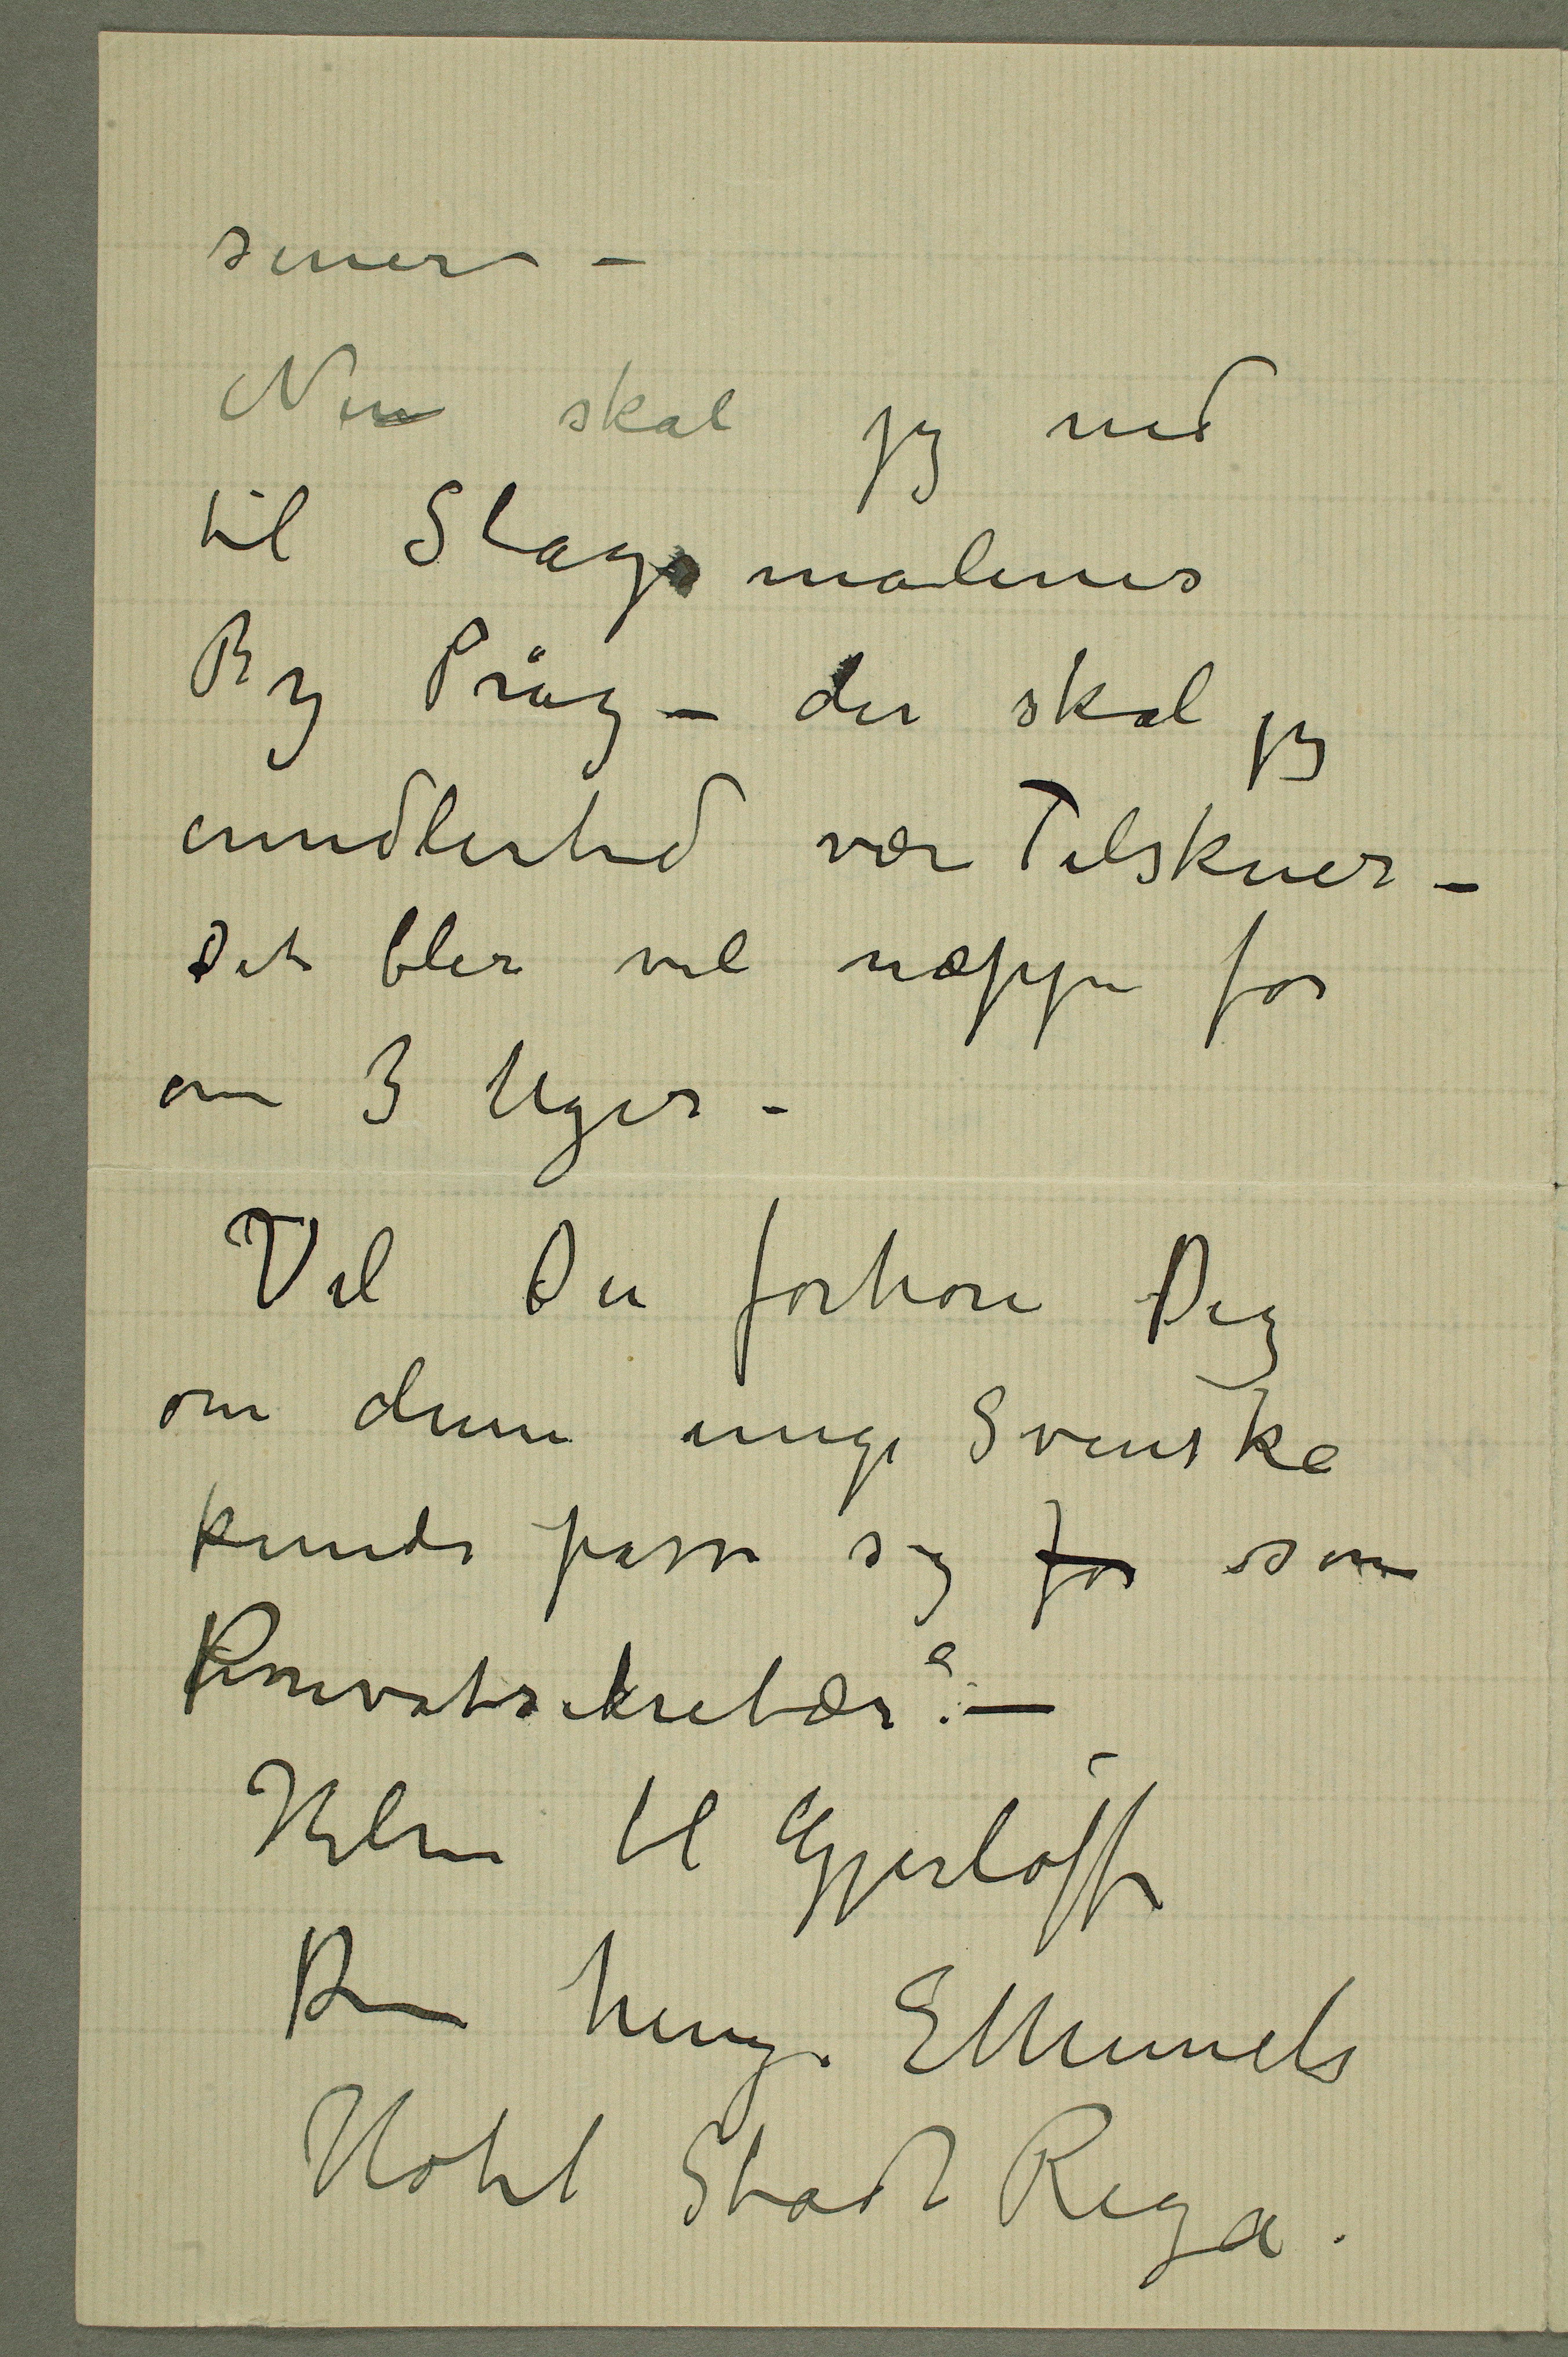 senere –
Nu skal jeg ned
til Slagsmålenes
By Pråg – der skal jeg
imidlertid være Tilskuer –
Det bler vel næppe før
om 3 Uger –
Vil Du forhøre Dig
om denne unge Svenske
kunde passe sig for som
Privatsekretær? –
Hilsen til Gjerløff
Din heng. EMunch
Hotel Stadt Riga.